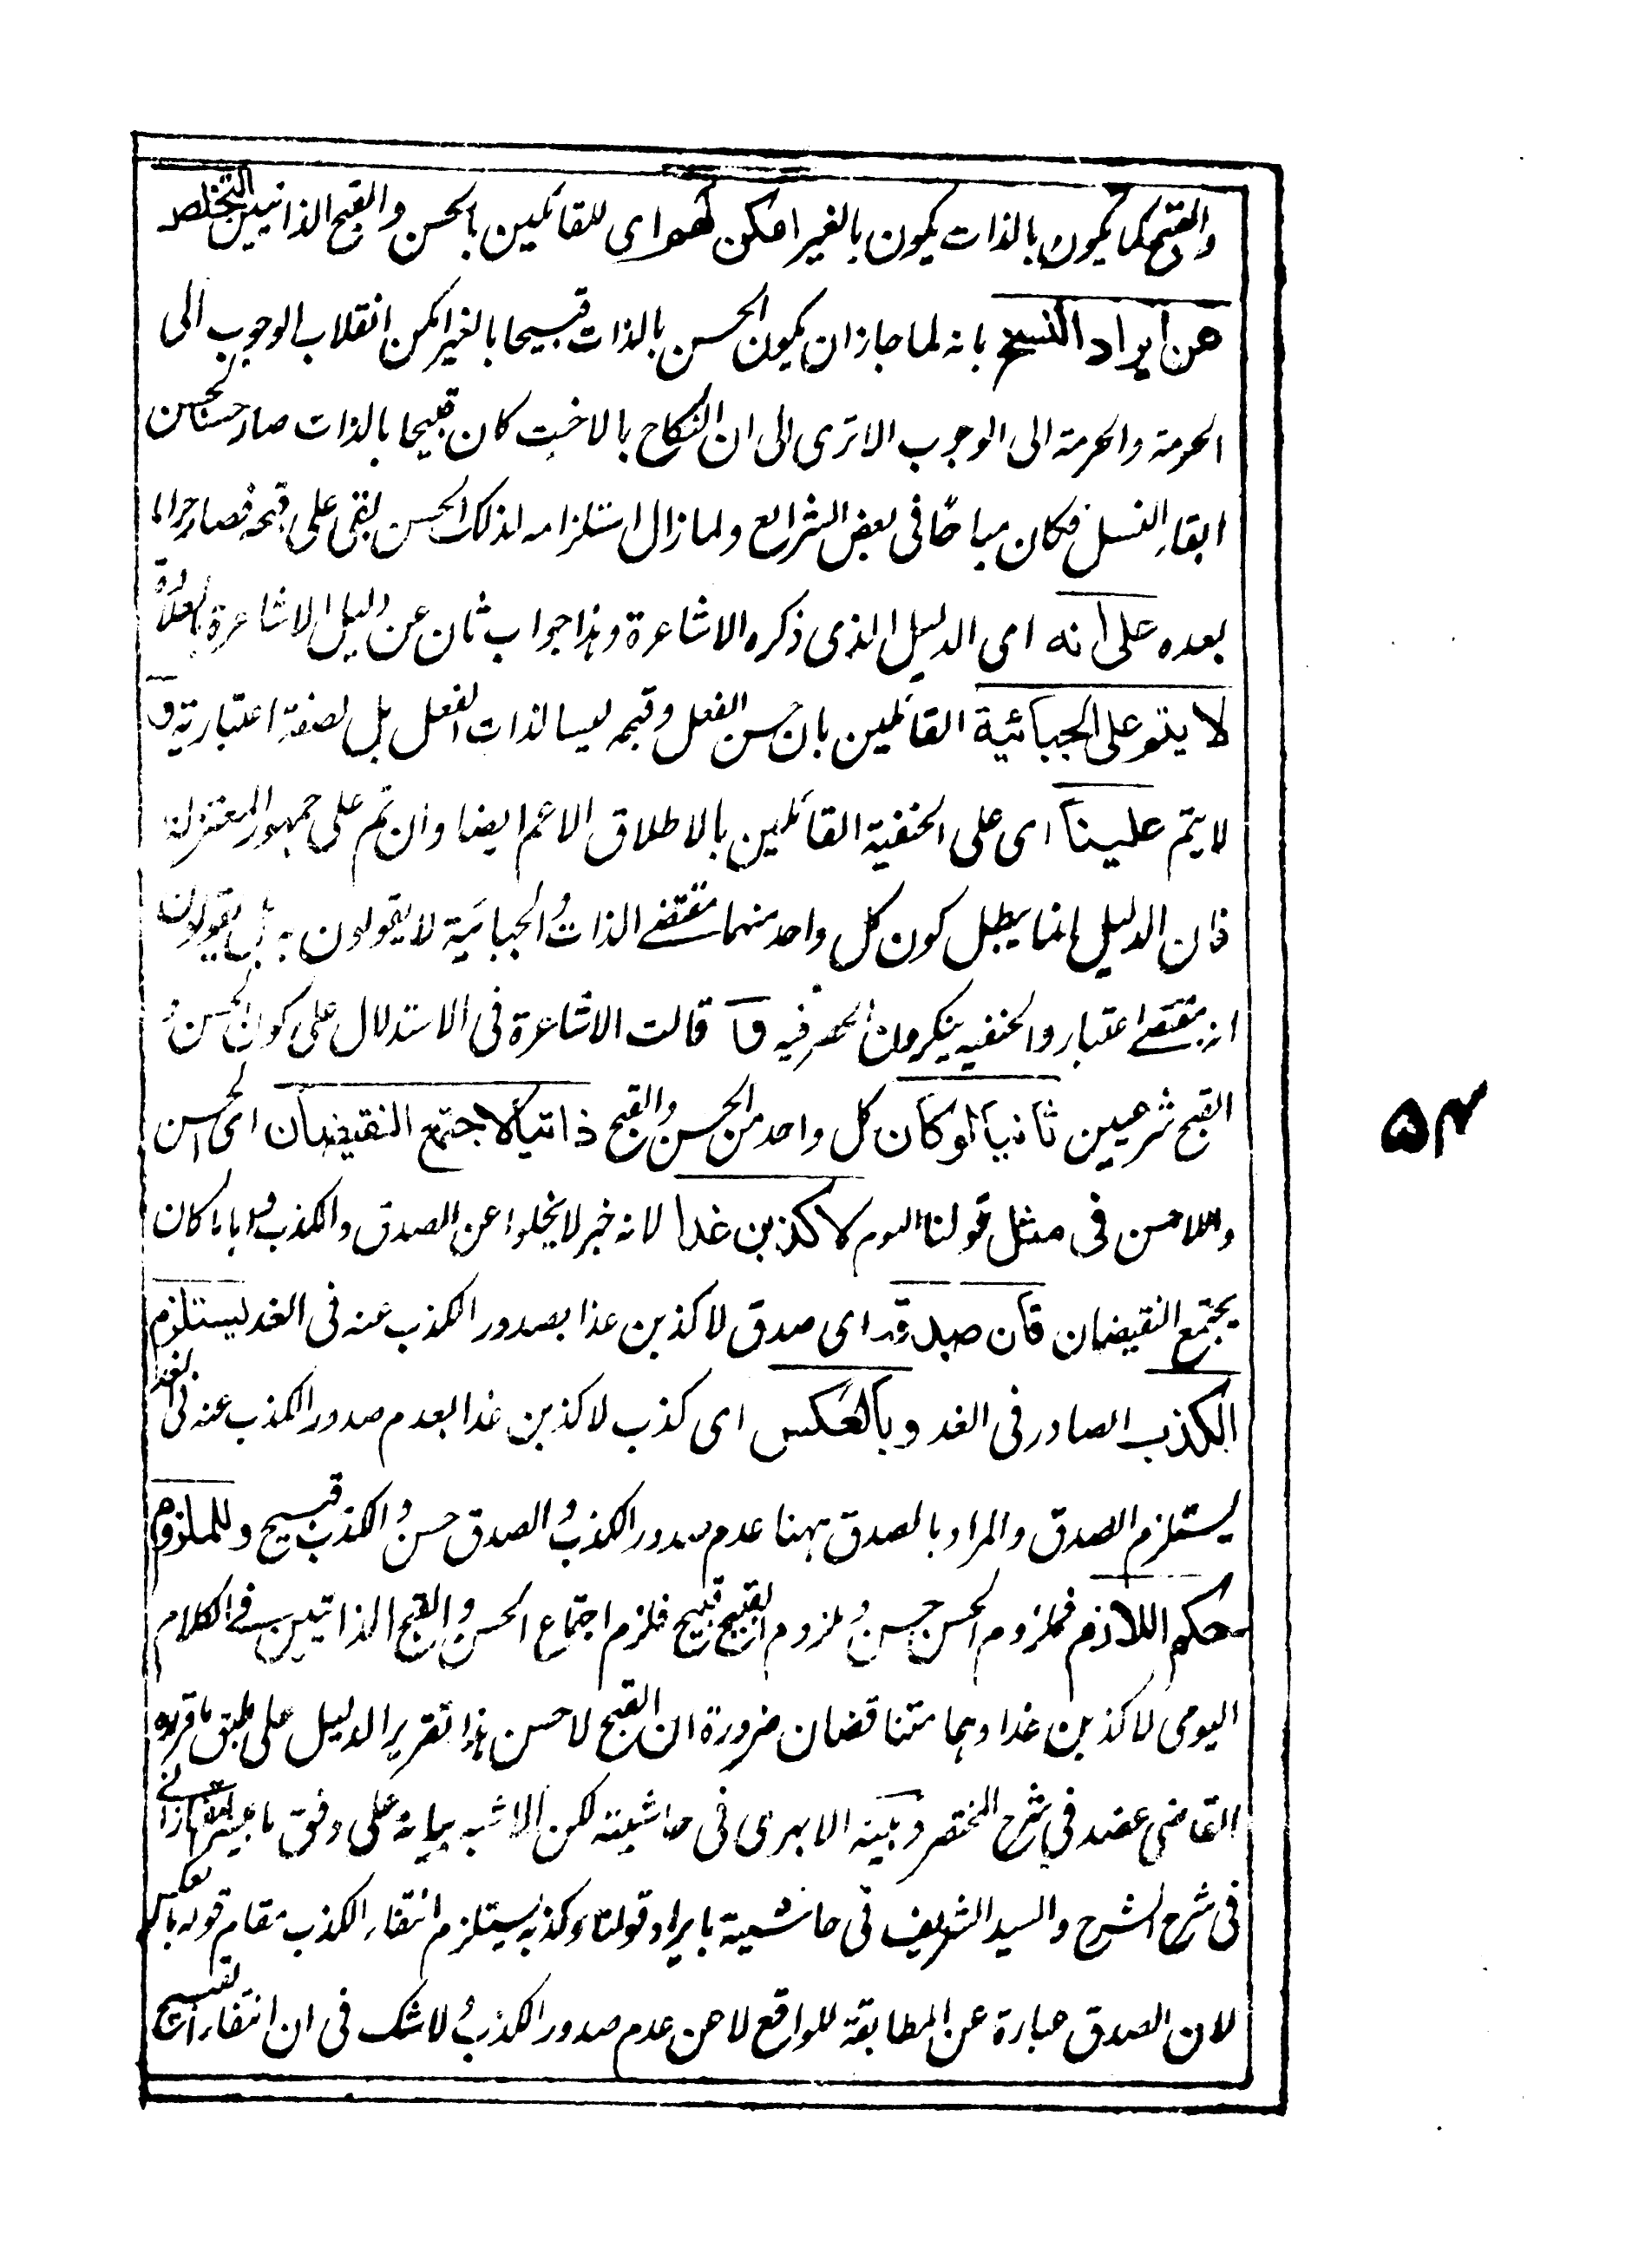 والقبح كما يكون بالذات يكون بالغير امكن لهم اى للقائلين بالحسن والقبح الذاتيين التخلص
عن ايراد النسخ بانه لما جاز ان يكون الحسن بالذات قبيحا بالغير امكن انقلاب الوجوب الى
الحرمة والحرمة الى الوجوب الا ترى الى ان النكاح بالاخت كان قبيحا بالذات صار حسنا لحسن
ابقاء النسل فكان مباحًا فى بعض الشرائع ولما زال استلزامه لذلك الحسن بقى على قبحه فصار حراما
بعده على انه اى الدليل الذى ذكره الاشاعرة وهذا جواب ثان عن دليل الاشاعرة بالعلاوة
لا يتم على الجبائية القائلين بان حسن الفعل وقبحه ليسا لذات الفعل بل لصفة اعتبارية و
لا يتم علينا اى على الحنفية القائلين بالاطلاق الاعم ايضا وان تم على جمهور المعتزلة
فان الدليل انما يبطل كون كل واحد منهما مقتضے الذات والجبائية لا يقولون به بل يقولون
انه بمقتضے اعتبار والحنفيه ينكرون الحصر فيه قا قالت الاشاعرة فى الاستدلال على كون الحسن و
القبح شرعيين ثانيا لو كان كل واحد من الحسن والقبح ذاتيا لاجتمع النقيضان اى الحسن
واللاحسن فى مثل قولنا اليوم لاكذبن غدا لانه خبر لا يخلوا عن الصدق والكذب وايا ما كان
يجتمع النقيضان فان صدقه اى صدق لاكذبن غدا بصدور الكذب عنه فى الغد يستلزم
الكذب الصادر فى الغد وبالعكس اى كذب لاكذبن غدا بعدم صدور الكذب عنه فى الغد
يستلزم الصدق والمراد بالصدق ههنا عدم صدور الكذب والصدق حسن والكذب قبيح وللملزوم
حكم اللازم فملزوم الحسن حسن وملزوم القبيح قبيح فلزم اجتماع الحسن والقبح الذاتيين فے الكلام
اليومى لاكذبن غدا وهما متناقضان ضرورة ان القبح لا حسن هذا تقرير الدليل على طبق ما قرره
القاضى عضد فى شرح المختصر وبينه الابهرى فى حاشيته لكن الاشبه بيانه على وفق ما عبر التفتازانے
فى شرح الشرح والسيد الشريف فى حاشيته بايراد قولنا وكذبه يستلزم انتفاء الكذب مقام قوله بالعكس
لان الصدق عبارة عن المطابقة للواقع لا عن عدم صدور الكذب ولا شك فى ان انتفاء القبيح
۵۴